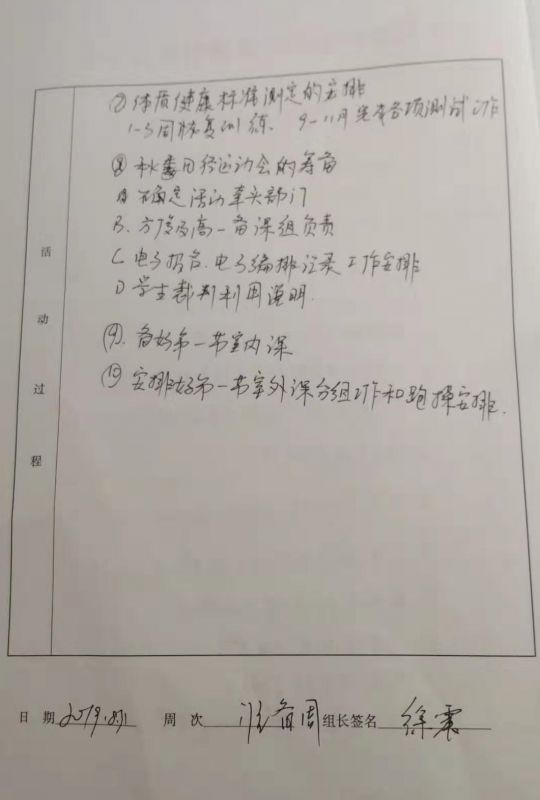 ⑦ 体质健康标准测定的安排
1-3周恢复训练. 9-11月完本各项测试工作
⑧ 秋季田径运动会的筹备
A 确定活动牵头部门
B. 方度及高一备课组负责
C. 电子报名.电子编排记录工作安排
D 学生裁判利用说明.
⑨. 备好第一节室内课
⑩ 安排好第一节室外课分组工作和跑操安排.
活动过程
日 期 2019.8.31 周 次 准备周 组长签名 徐震